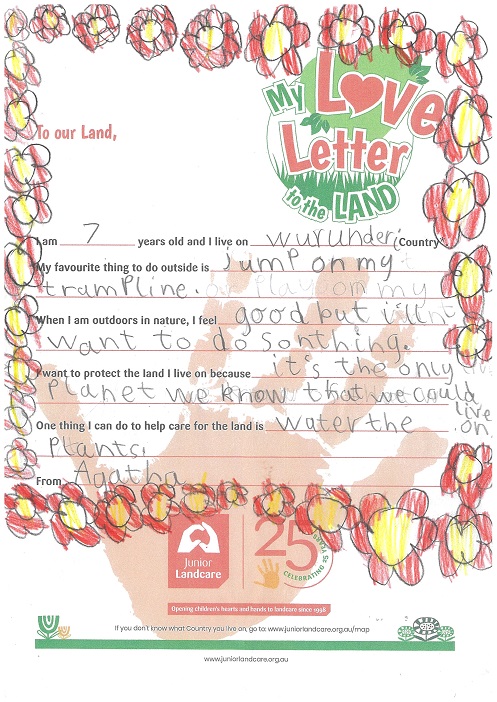 My Love
Letter
to the LAND
To our Land,
I am 7 years old and I live on wurunderi Country
My favourite thing to do outside is jump on my
trampline. or play on my
When I am outdoors in nature, I feel good but i'll
want to do sonthing.
I want to protect the land I live on because it's the only
Planet we know that we could
live
One thing I can do to help care for the land is water the on
Plants.
From Agatha
Junior
Landcare
25
YEARS
CELEBRATING 25
Opening children's hearts and hands to landcare since 1998
If you don't know what Country you live on, go to: www.juniorlandcare.org.au/map
www.juniorlandcare.org.au